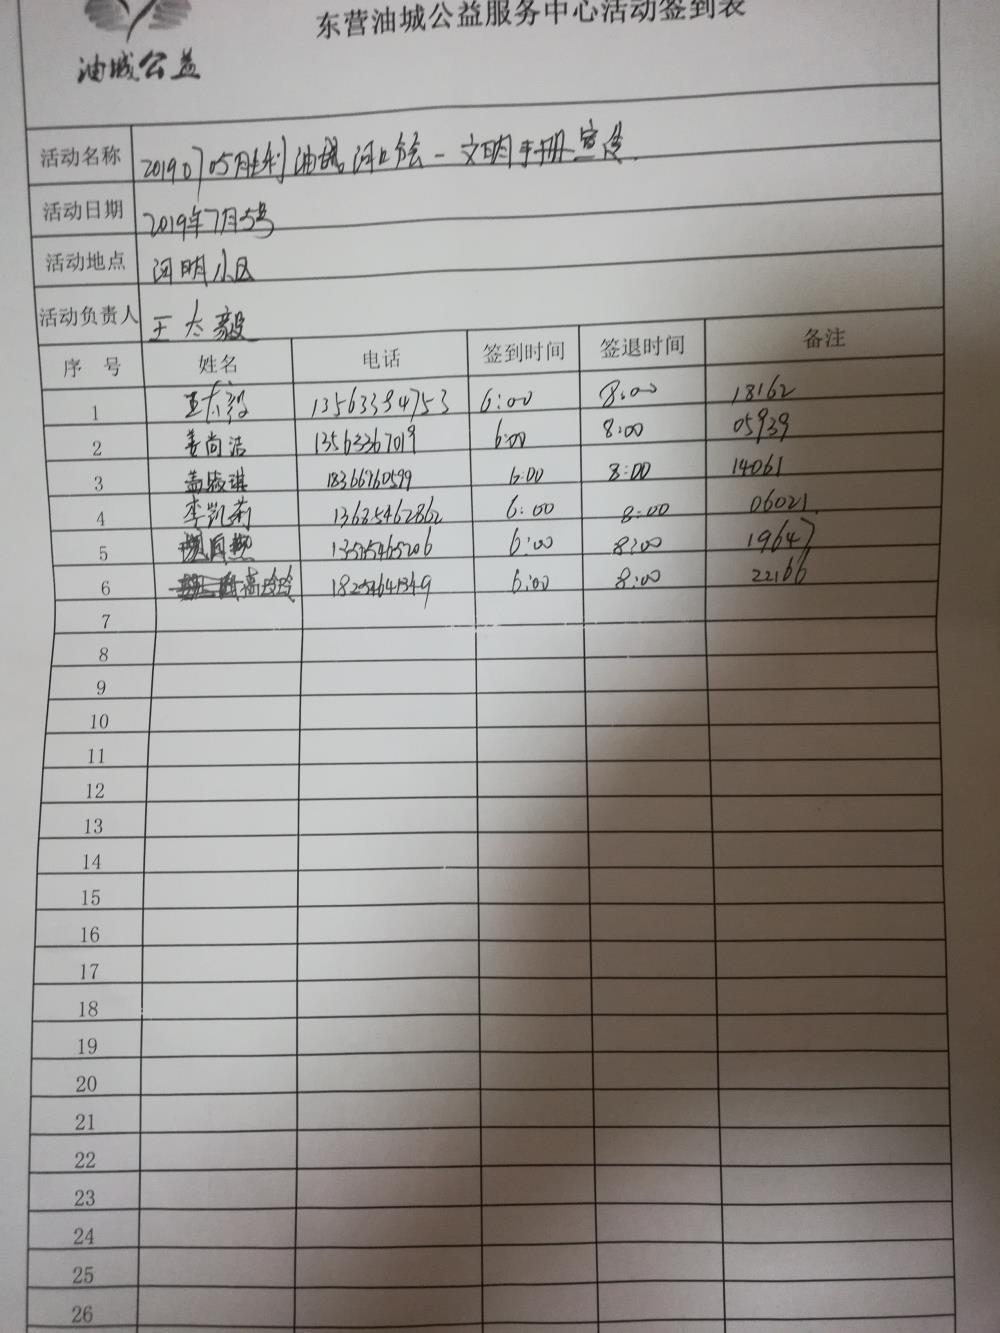 东营油城公益服务中心活动签到表
油城公益
活动名称 20190705胜利油城河口分会-文明手册宣传
活动日期 2019年7月5号
活动地点 河明小区
活动负责人 王太毅
序 号 姓名 电话 签到时间 签退时间 备注
1 王太毅 13563394753 6:00 8:00 18162
2 姜尚洁 13563367019 6:00 8:00 05939
3 18366760599 6:00 8:00 14061
4 李凯莉 13685462862 6:00 8:00 06021
5 6:00 8:00 19647
6 6:00 8:00 22166
7
8
9
10
11
12
13
14
15
16
17
18
19
20
21
22
23
24
25
26